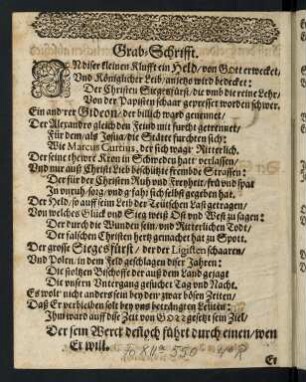 Grab-Schrifft.
IN diser kleinen Klufft ein Held / von GOtt erwecket /
Vnd Königlicher Leib / anjetzo wird bedecket:
Der Christen Siegesfürst / die vmb die reine Lehr /
Von der Papisten schaar gepresset worden schwer.
Ein andrer Gideon / der billich ward genennet /
Der Alexandro gleich den Feind mit furcht getrennet /
Für dem / als Josua / die Stätte furchten sich:
Wie Marcus Curtius, der sich wagt Ritterlich.
Der seine thewre Kron in Schweden hatt verlassen /
Vnd nur auß Christi Lieb beschützte frembde Strassen:
Der für der Christen Ruh vnd Freyheit / frü vnd spat
In vnruh / sorg / vnd gfahr sich selbst gegeben hat.
Der Held / so auff seim Leib der Teutschen Last getragen /
Von welches Glück vnd Sieg weiß Ost vnd West zu sagen:
Der durch die Wunden sein / vnd Ritterlichen Todt /
Der falschen Christen hertz gemachet hat zu Spott.
Der grosse Siegesfürst / der der Ligisten schaaren /
Vnd Polen / in dem Feld geschlagen diser Jahren:
Die stoltzen Bischoffe der auß dem Land gejagt
Die vnsern Vntergang gesuchet Tag vnd Nacht.
Es wolt nicht anders sein bey den zwar bösen Zeiten /
Daß Er verbleiben solt bey vns betrangten Leuten:
Ihm ward auff dise Zeit von GOTT gesetzt sein Ziel /
Der sein Werck dennoch führt durch einen / wen
Er will.
Er